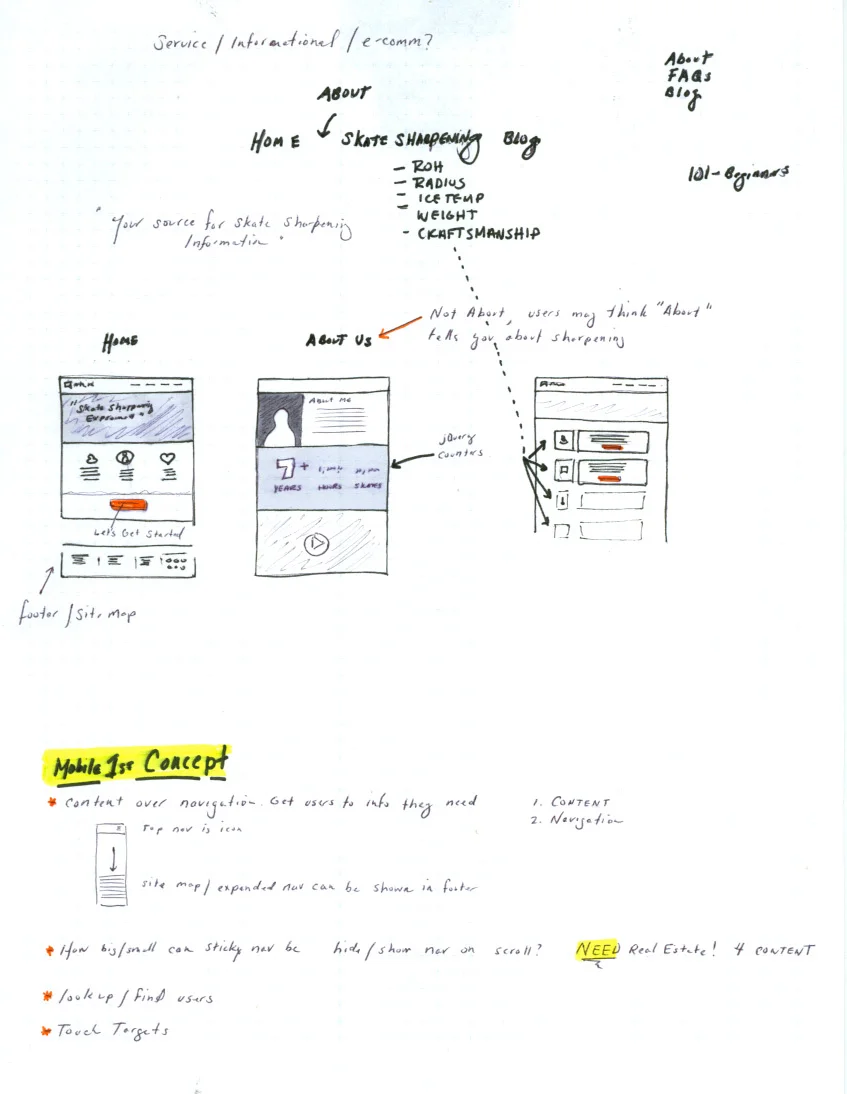 Service / Informational / e-comm?
About
FAQs
Blog
ABOUT
HOME SKATE SHARPENING Blog
- ROH
- RADIUS
- ICE TEMP
- WEIGHT
- CRAFTSMANSHIP
101 - Beginners
"Your source for Skate Sharpening
Information"
Not About, users may think "About"
tells you about sharpening
HOME
ABOUT US
"Skate Sharpening
Explained"
About Me
7+
YEARS HOURS SKATES
jQuery
counters
Let's Get Started
footer / Site Map
Mobile 1st Concept
* Content over navigation. Get users to info they need
1. CONTENT
2. Navigation
Top nav is icon
site map / expanded nav can be shown in footer
* How big/small can sticky nav be hide / show nav on scroll? NEED Real Estate! 4 CONTENT
* look up / find users
* Touch Targets